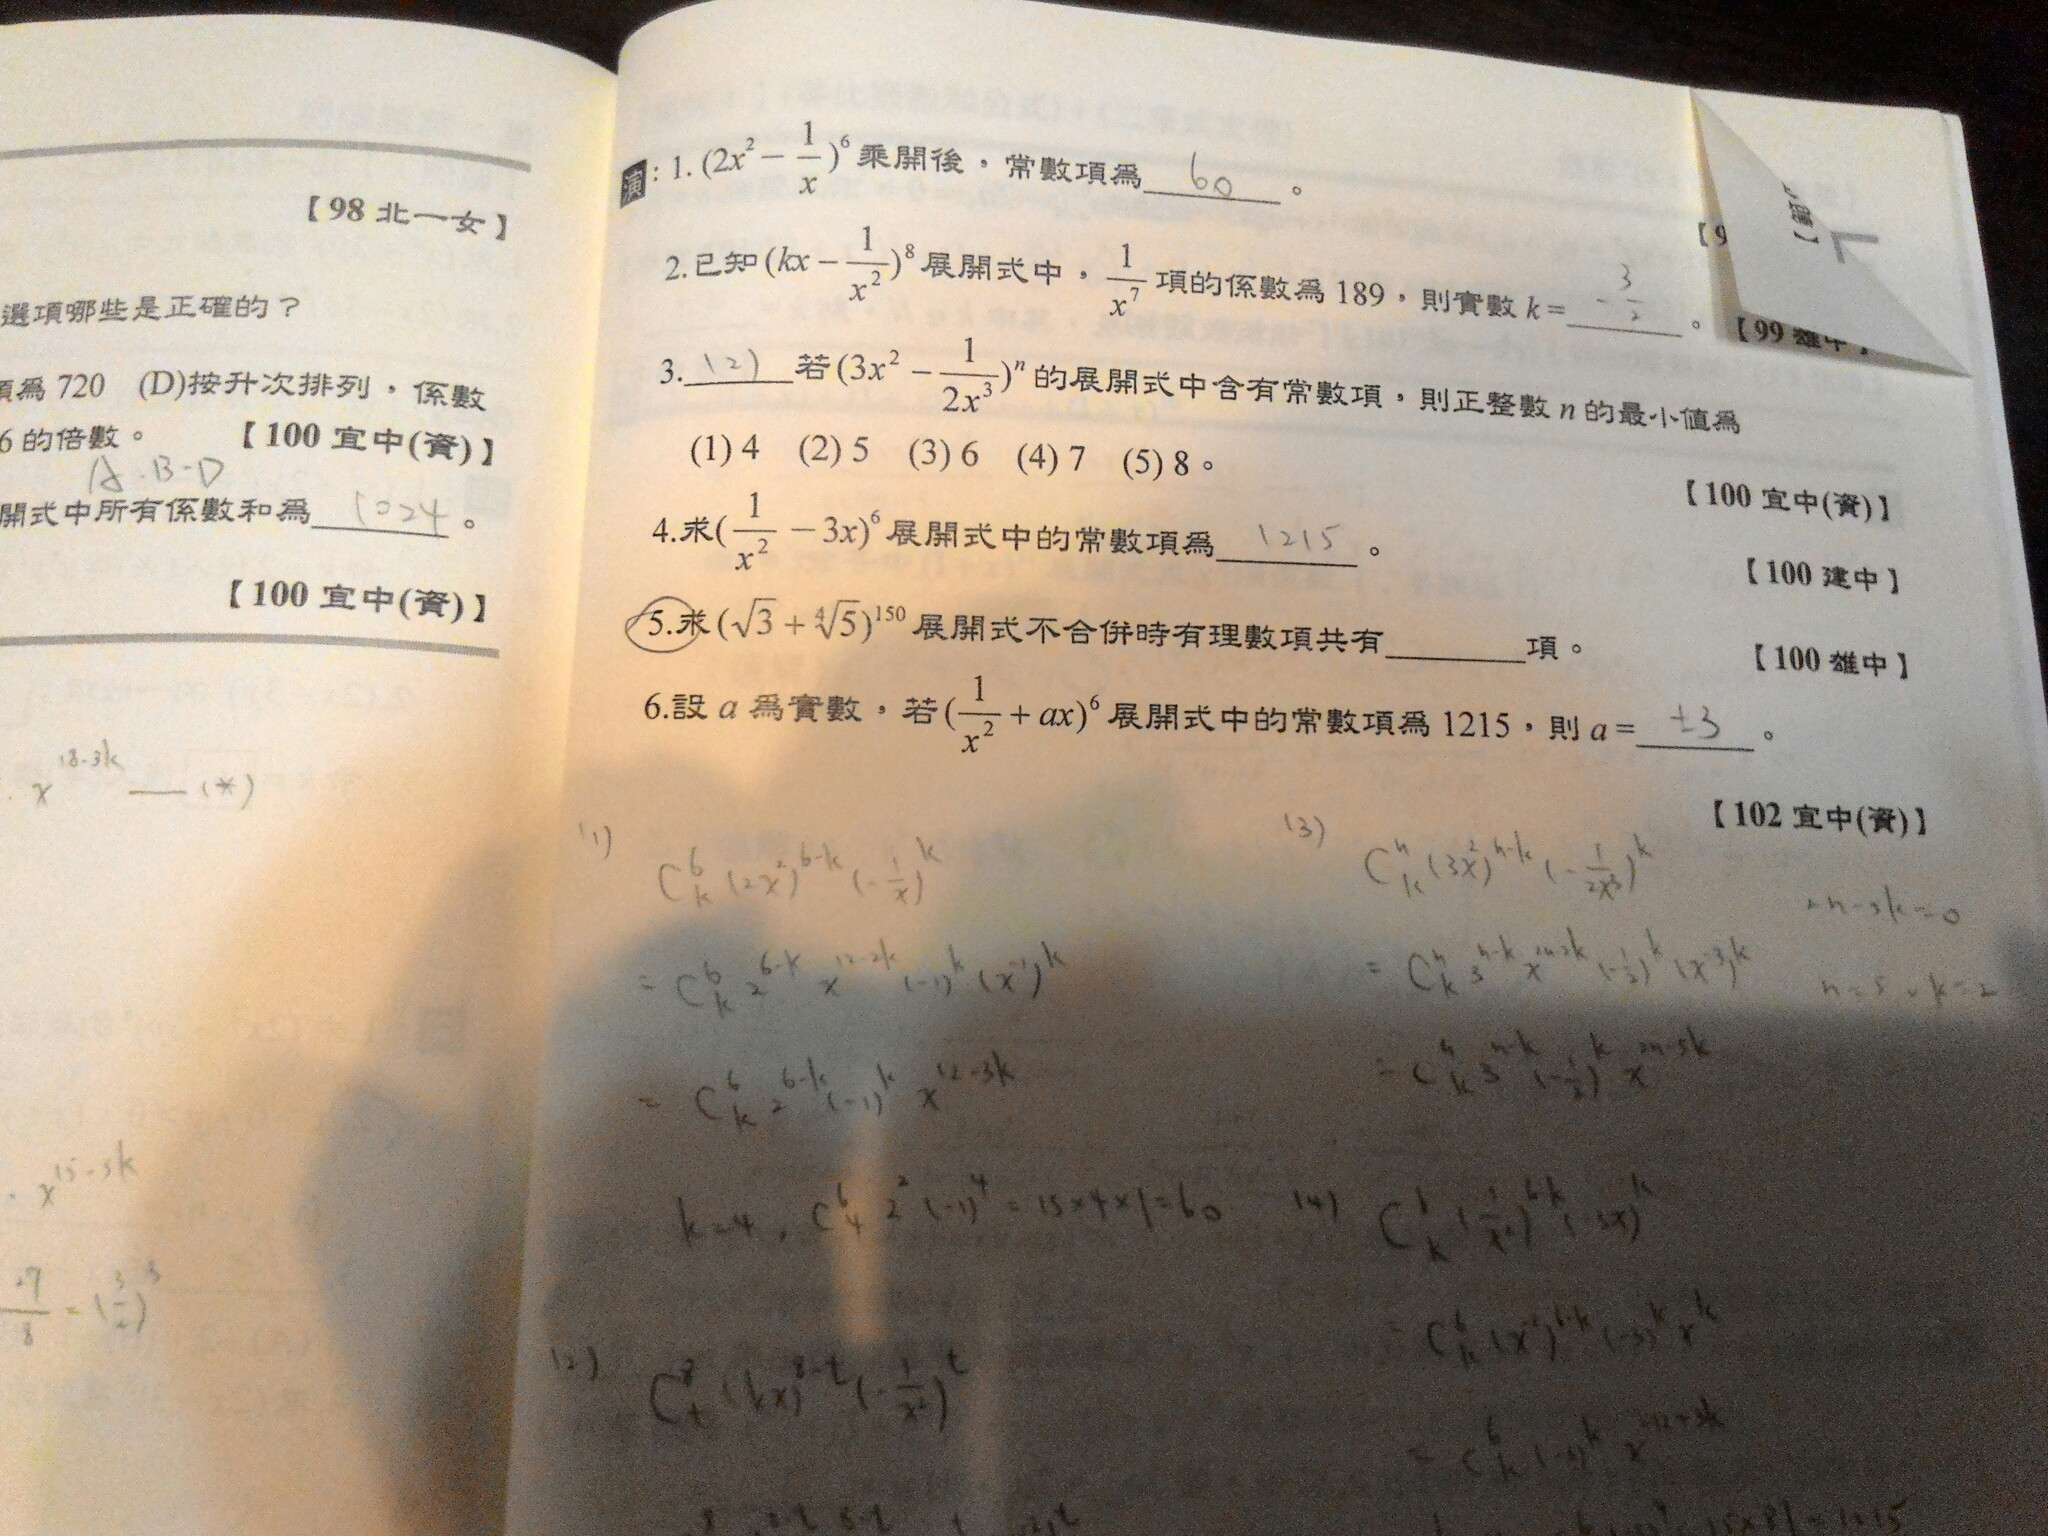 【98 北一女】
選項哪些是正確的？
項為 720 (D)按升次排列，係數
6 的倍數。 【100 宜中(資)】
A.B.D
開式中所有係數和為 1024 。
【100 宜中(資)】
x^{18-3k} —— (*)
x^{15-5k}
= (3/2)^3
演：1. (2x² − 1/x)⁶ 乘開後，常數項為 60 。
2.已知 (kx − 1/x²)⁸ 展開式中，1/x⁷ 項的係數為 189，則實數 k = -3/2 。 【99 雄中】
3. (2) 若 (3x² − 1/(2x³))ⁿ 的展開式中含有常數項，則正整數 n 的最小值為
(1) 4 (2) 5 (3) 6 (4) 7 (5) 8。
【100 宜中(資)】
4.求 (1/x² − 3x)⁶ 展開式中的常數項為 1215 。
【100 建中】
5.求 (√3 + ⁴√5)¹⁵⁰ 展開式不合併時有理數項共有 項。 【100 雄中】
6.設 a 為實數，若 (1/x² + ax)⁶ 展開式中的常數項為 1215，則 a = ±3 。
【102 宜中(資)】
(1) C^6_k (2x²)^{6-k} (-1/x)^k
= C^6_k 2^{6-k} x^{12-2k} (-1)^k (x^{-1})^k
= C^6_k 2^{6-k} (-1)^k x^{12-3k}
k=4, C^6_4 2² (-1)^4 = 15×4×1=60
(2) C^8_t (kx)^{8-t} (-1/x²)^t
(3) C^n_k (3x²)^{n-k} (-1/2x³)^k
= C^n_k 3^{n-k} x^{2n-2k} (-1/2)^k (x^{-3})^k
= C^n_k 3^{n-k} (-1/2)^k x^{2n-5k}
2n-5k=0
n=5, k=2
(4) C^6_k (1/x²)^{6-k} (-3x)^k
= C^6_k (x^{-2})^{6-k} (-3)^k x^k
= C^6_k (-3)^k x^{-12+3k}